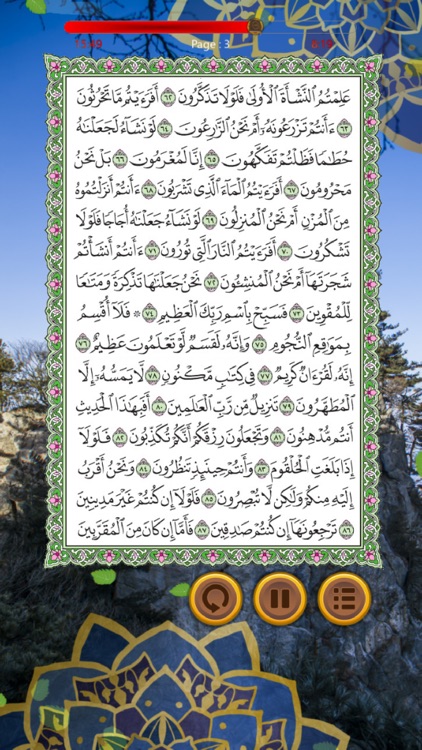 15:09
Page : 3
عَلِمْتُمُ ٱلنَّشْأَةَ ٱلْأُولَىٰ فَلَوْلَا تَذَكَّرُونَ ٦٢ أَفَرَءَيْتُم مَّا تَحْرُثُونَ
٦٣ ءَأَنتُمْ تَزْرَعُونَهُۥٓ أَمْ نَحْنُ ٱلزَّٰرِعُونَ ٦٤ لَوْ نَشَآءُ لَجَعَلْنَٰهُ
حُطَٰمًا فَظَلْتُمْ تَفَكَّهُونَ ٦٥ إِنَّا لَمُغْرَمُونَ ٦٦ بَلْ نَحْنُ
مَحْرُومُونَ ٦٧ أَفَرَءَيْتُمُ ٱلْمَآءَ ٱلَّذِى تَشْرَبُونَ ٦٨ ءَأَنتُمْ أَنزَلْتُمُوهُ
مِنَ ٱلْمُزْنِ أَمْ نَحْنُ ٱلْمُنزِلُونَ ٦٩ لَوْ نَشَآءُ جَعَلْنَٰهُ أُجَاجًا فَلَوْلَا
تَشْكُرُونَ ٧٠ أَفَرَءَيْتُمُ ٱلنَّارَ ٱلَّتِى تُورُونَ ٧١ ءَأَنتُمْ أَنشَأْتُمْ
شَجَرَتَهَآ أَمْ نَحْنُ ٱلْمُنشِـُٔونَ ٧٢ نَحْنُ جَعَلْنَٰهَا تَذْكِرَةً وَمَتَٰعًا
لِّلْمُقْوِينَ ٧٣ فَسَبِّحْ بِٱسْمِ رَبِّكَ ٱلْعَظِيمِ ٧٤ ۞ فَلَآ أُقْسِمُ
بِمَوَٰقِعِ ٱلنُّجُومِ ٧٥ وَإِنَّهُۥ لَقَسَمٌ لَّوْ تَعْلَمُونَ عَظِيمٌ ٧٦
إِنَّهُۥ لَقُرْءَانٌ كَرِيمٌ ٧٧ فِى كِتَٰبٍ مَّكْنُونٍ ٧٨ لَّا يَمَسُّهُۥٓ إِلَّا
ٱلْمُطَهَّرُونَ ٧٩ تَنزِيلٌ مِّن رَّبِّ ٱلْعَٰلَمِينَ ٨٠ أَفَبِهَٰذَا ٱلْحَدِيثِ
أَنتُم مُّدْهِنُونَ ٨١ وَتَجْعَلُونَ رِزْقَكُمْ أَنَّكُمْ تُكَذِّبُونَ ٨٢ فَلَوْلَآ
إِذَا بَلَغَتِ ٱلْحُلْقُومَ ٨٣ وَأَنتُمْ حِينَئِذٍ تَنظُرُونَ ٨٤ وَنَحْنُ أَقْرَبُ
إِلَيْهِ مِنكُمْ وَلَٰكِن لَّا تُبْصِرُونَ ٨٥ فَلَوْلَآ إِن كُنتُمْ غَيْرَ مَدِينِينَ
٨٦ تَرْجِعُونَهَآ إِن كُنتُمْ صَٰدِقِينَ ٨٧ فَأَمَّآ إِن كَانَ مِنَ ٱلْمُقَرَّبِينَ